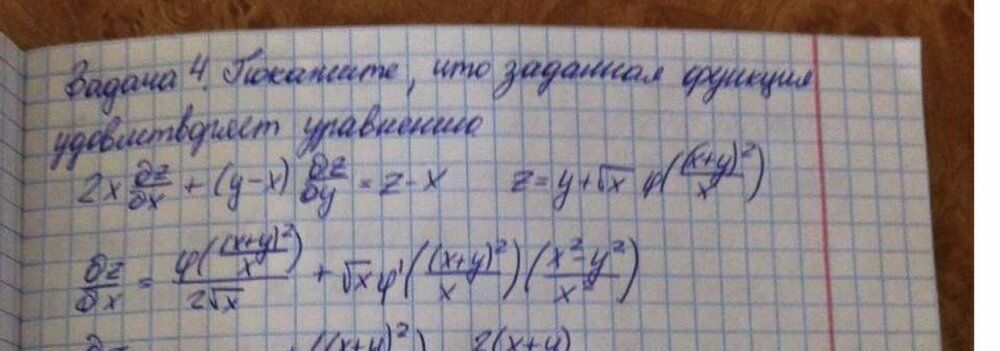 Задача 4. Покажите, что заданная функция
удовлетворяет уравнению
2x ∂z/∂x + (y-x) ∂z/∂y = z-x z = y+√x φ((x+y)²/x)
∂z/∂x = φ((x+y)²/x)/2√x + √x φ'((x+y)²/x)((x²-y²)/x²)
((x+y)²) 2(x+y)